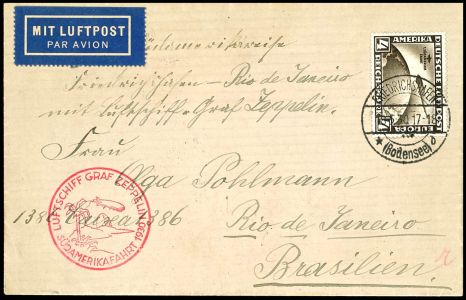 MIT LUFTPOST
PAR AVION
Südamerikareise
Friedrichshafen - Rio de Janeiro
mit Luftschiff "Graf Zeppelin.
Frau
Olga Pohlmann
1386 Caixa 1386
Rio de Janeiro
Brasilien.
LUFTSCHIFF GRAF ZEPPELIN
SÜDAMERIKAFAHRT 1930
AMERIKA
DEUTSCHE LUFTPOST
EUROPA
FRIEDRICHSHAFEN
17-18
(Bodensee) d